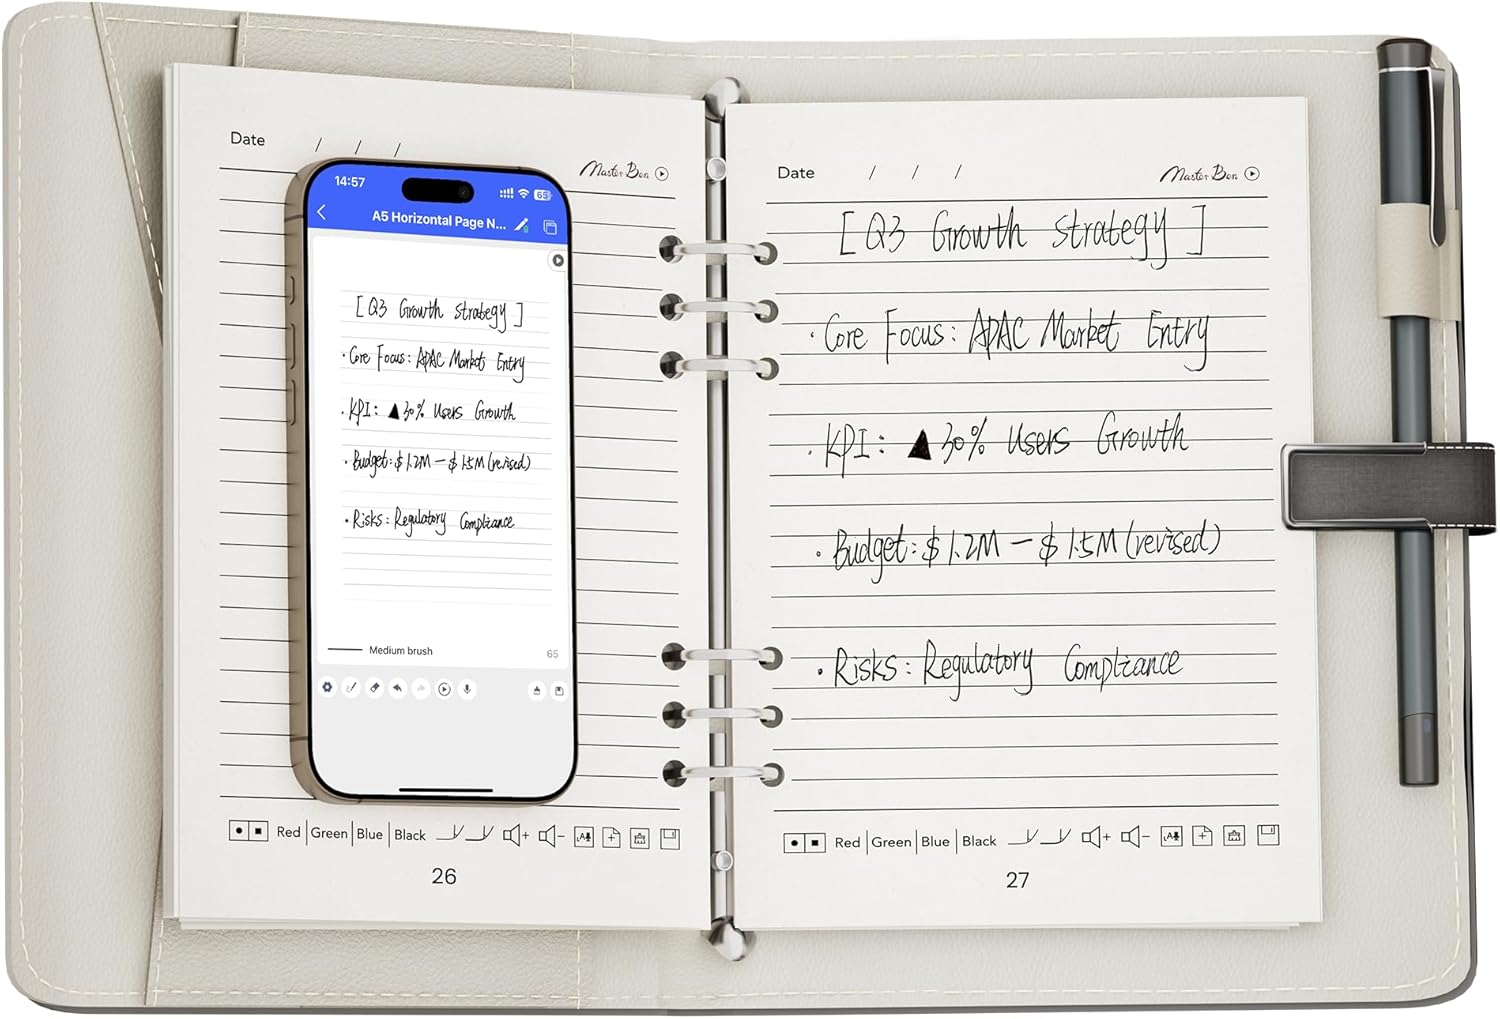 Date / / /
Master Ben
14:57
65
A5 Horizontal Page N...
[ Q3 Growth Strategy ]
· Core Focus: APAC Market Entry
· KPI: ▲30% Users Growth
· Budget: $1.2M — $1.5M (revised)
· Risks: Regulatory Compliance
Medium brush
65
Red | Green | Blue | Black + - A
26
Date / / /
Master Ben
[ Q3 Growth Strategy ]
· Core Focus: APAC Market Entry
· KPI: ▲30% Users Growth
· Budget: $1.2M — $1.5M (revised)
· Risks: Regulatory Compliance
Red | Green | Blue | Black + - A
27